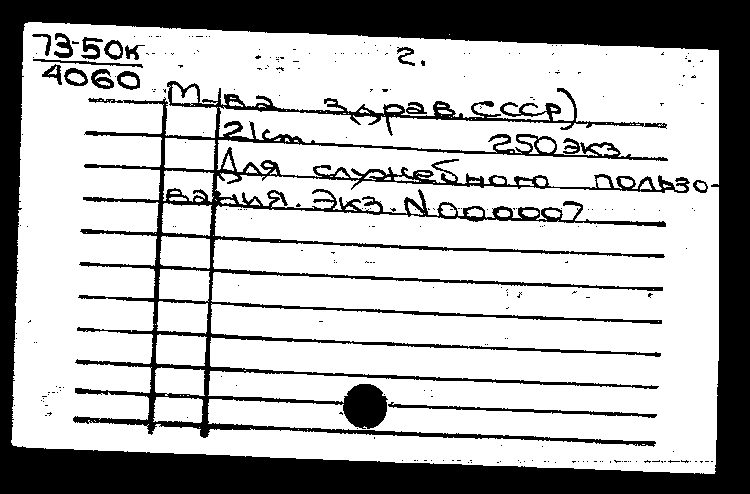 73-50к
4060
2.
М-ва здрав. СССР).
21 cm. 250 экз.
Для служебного пользо-
вания. Экз. N 000007.